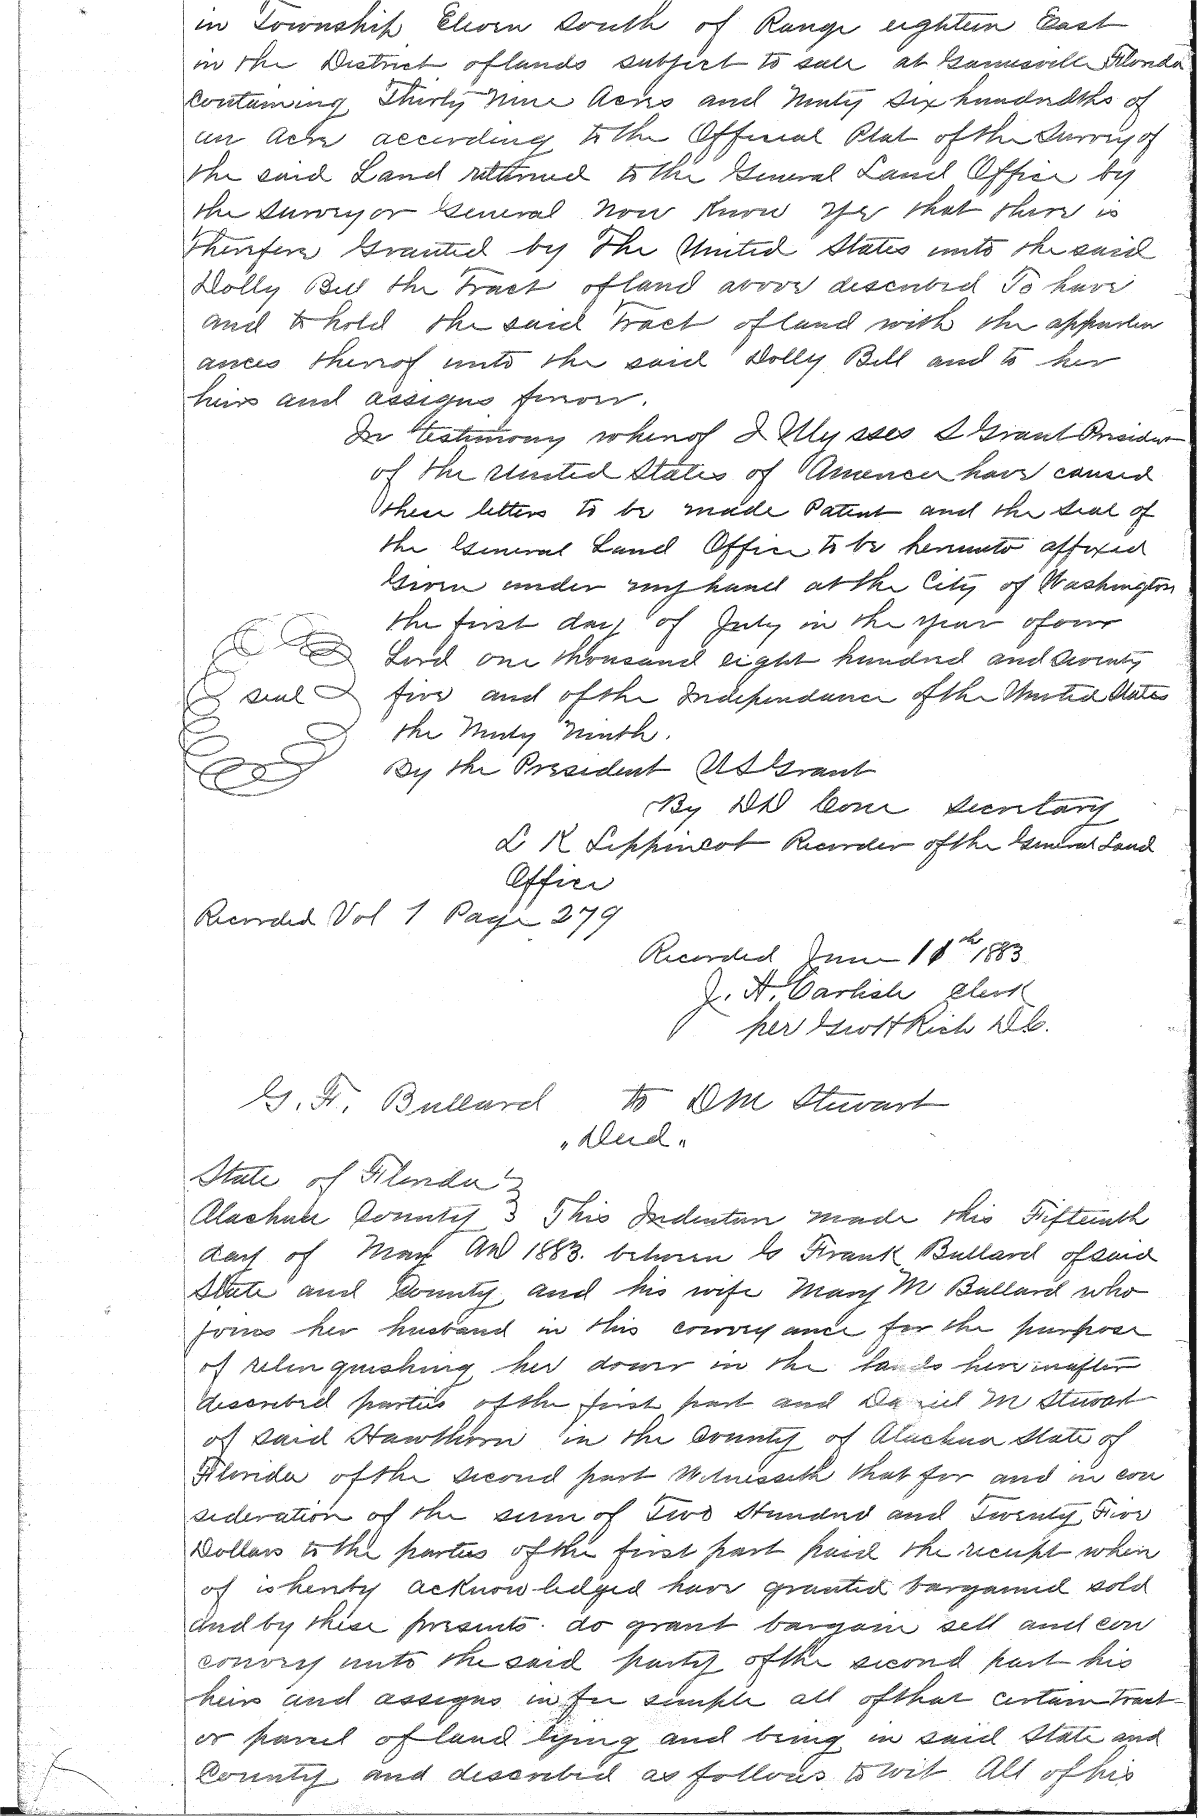 in Township Eleven South of Range eighteen East
in the District of lands subject to sale at Gainesville Florida
Containing Thirty Nine Acres and Ninty Six hundredths of
an Acre according to the Official Plat of the Survey of
the said Land returned to the General Land Office by
the Surveyor General Now Know Ye that there is
therefore Granted by The United States unto the said
Dolly Bell the Tract of land above described To have
and to hold the said Tract of land with the apparten
ances thereof unto the said Dolly Bell and to her
heirs and assigns forever.
In testimony whereof I Ulysses S Grant President
of the United States of America have caused
these letters to be made Patent and the Seal of
the General Land Office to be hereunto affixed
Given under my hand at the City of Washington
the first day of July in the year of our
Lord one thousand eight hundred and Seventy
seal five and of the Independance of the United States
the Ninty Ninth.
By the President U S Grant
By D D Cone Secretary
L K Lippincot Recorder of the General Land
Office
Recorded Vol 1 Page 279
Recorded June 11th 1883
J. A. Carlisle Clerk
per Geo H Rich D.C.
G. F. Bullard to D M Stewart
"Deed"
State of Florida }
Alachua County } This Indenture made this Fifteenth
day of May AD 1883. between G Frank Bullard of said
State and County and his wife Mary M Bullard who
joins her husband in this conveyance for the purpose
of relinquishing her dower in the lands hereinafter
described parties of the first part and Daniel M Stewart
of said Hawthorn in the County of Alachua State of
Florida of the second part Witnesseth that for and in con
sideration of the sum of Two Hundred and Twenty Five
Dollars to the parties of the first part paid the receipt where
of is hereby acknowledged have granted bargained sold
and by these presents do grant bargain sell and con
convey unto the said party of the second part his
heirs and assigns in fee simple all of that certain Tract
or parcel of land lying and being in said State and
County and described as follows to wit All of his